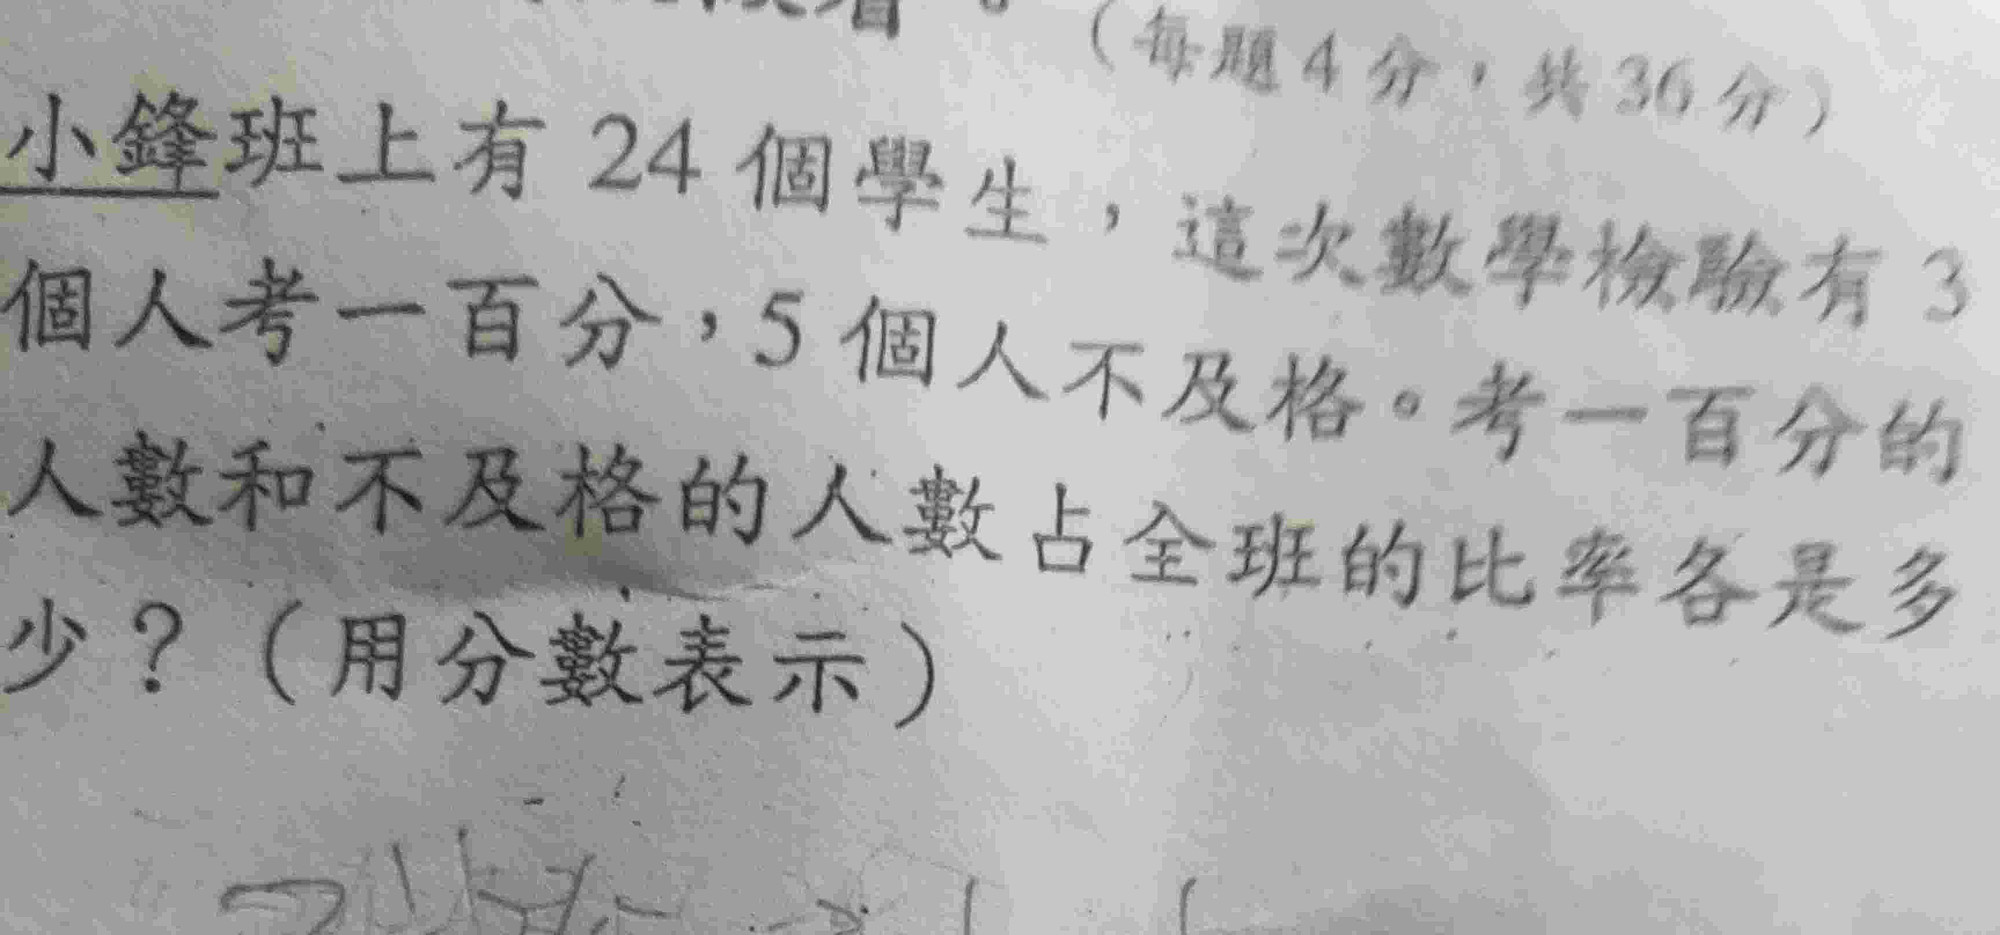 （每題4分，共36分）
小鋒班上有 24 個學生，這次數學檢驗有 3
個人考一百分，5 個人不及格。考一百分的
人數和不及格的人數占全班的比率各是多
少？（用分數表示）